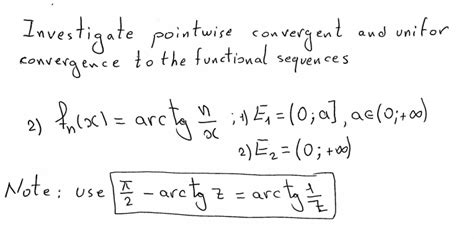 Investigate pointwise convergent and unifor
convergence to the functional sequences
2) fₙ(x) = arctg n/x ; 1) E₁ = (0; a], a∈(0; +∞)
2) E₂ = (0; +∞)
Note: use π/2 - arctg z = arctg 1/z